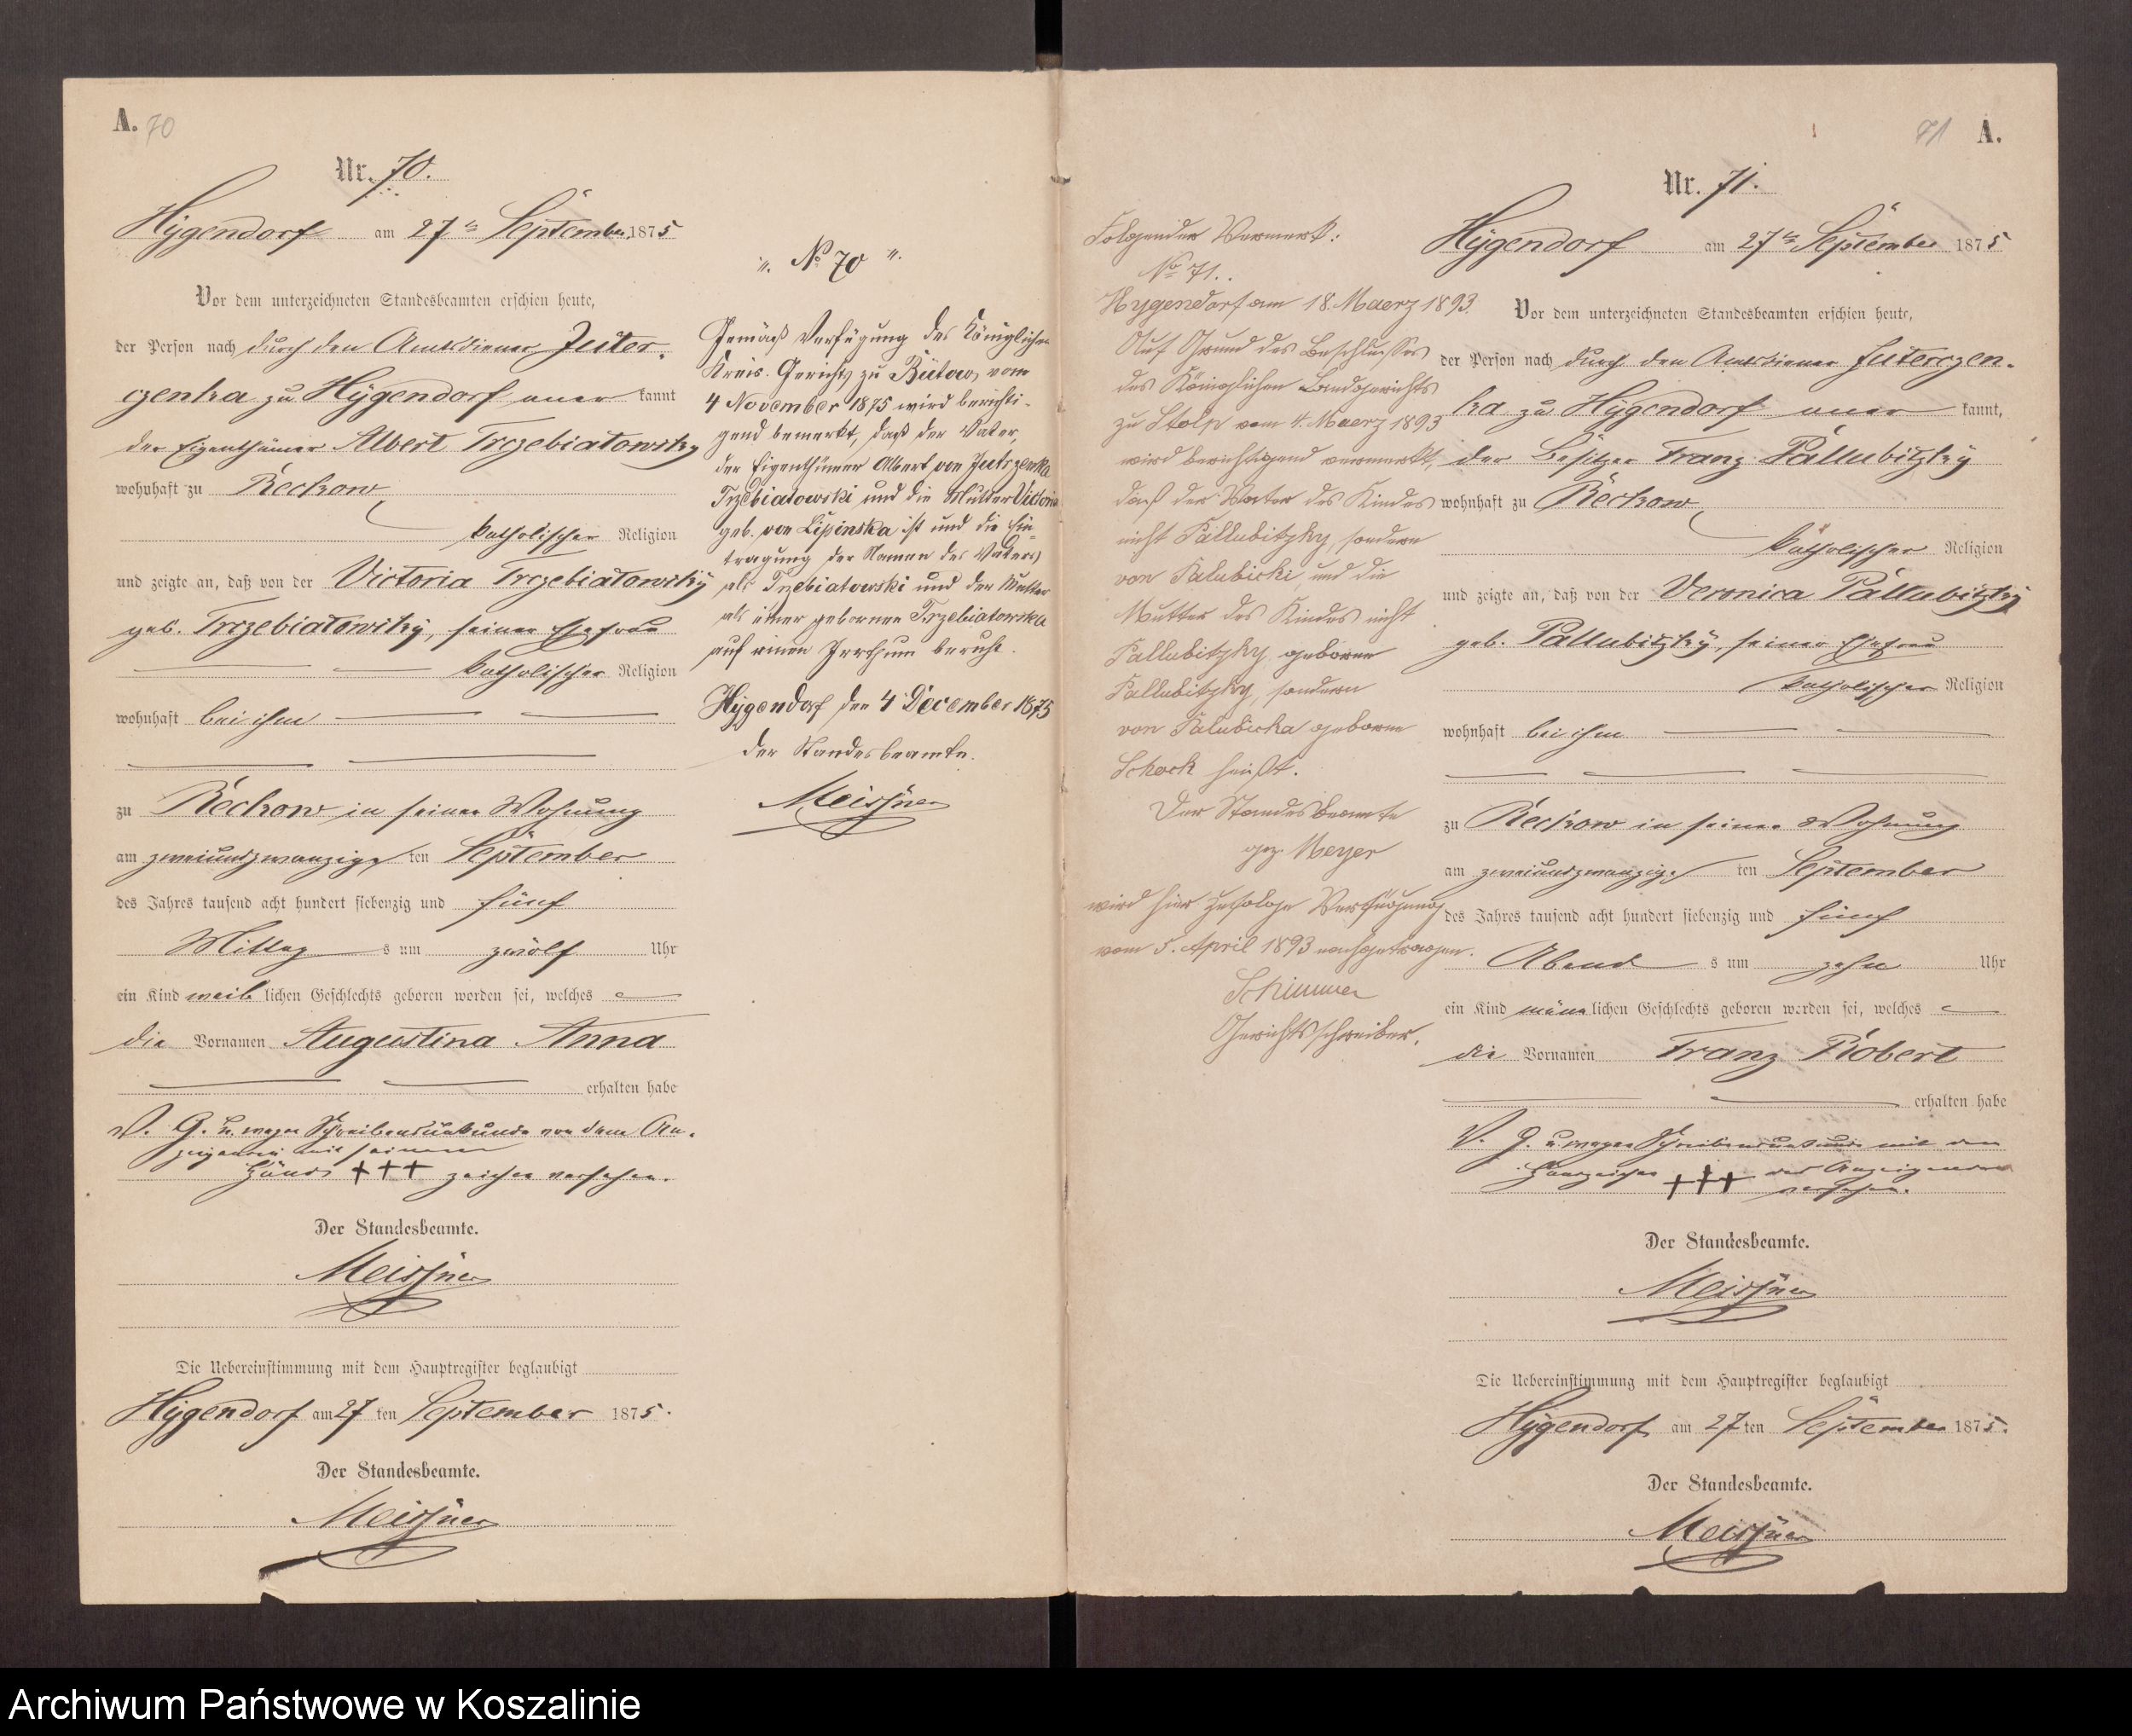 A. 70
Nr. 70.
Hygendorf am 27ten September 1875
Vor dem unterzeichneten Standesbeamten erschien heute,
der Person nach durch den Amtsdiener Juter-
czenka zu Hygendorf aner kannt
der Eigenthümer Albert Trzebiatowsky
wohnhaft zu Reckow,
katholischer Religion
und zeigte an, daß von der Victoria Trzebiatowsky
geb. Trzebiatowsky, seiner Ehefrau
katholischer Religion
wohnhaft bei ihm
zu Reckow in seiner Wohnung
am zweiundzwanzigs ten September
des Jahres tausend acht hundert siebenzig und fünf
Mittag s um zwölf Uhr
ein Kind weib lichen Geschlechts geboren worden sei, welches
die Vornamen Augustina Anna
erhalten habe
V. G. u. wegen Schreibensunkunde von dem An-
zeigenden mit seinem
Hand +++ zeichen versehen.
Der Standesbeamte.
Meissner
Die Uebereinstimmung mit dem Hauptregister beglaubigt
Hygendorf am 27 ten September 1875.
Der Standesbeamte.
Meissner
". No 70 ".
Gemäß Verfügung des Königlichen
Kreis-Gerichts zu Bütow, vom
4 November 1875 wird berichti-
gend bemerkt, daß der Vater,
der Eigenthümer Albert von Jutrzenka
Trzebiatowski und die Mutter Victoria
geb. von Lipinska ist und die Ein-
tragung der Namen des Vaters
als Trzebiatowski und der Mutter
als einer gebornen Trzebiatowska
auf einen Irrthum beruht.
Hygendorf den 4 December 1875
Der Standesbeamte.
Meissner
Folgender Vermerk:
No 71.
Hygendorf am 18. Maerz 1893.
Auf Grund des Beschlusses
des Königlichen Landgerichts
zu Stolp vom 4. Maerz 1893
wird berichtigend vermerkt,
daß der Vater des Kindes
nicht Pallubitzky, sondern
von Palubicki und die
Mutter des Kindes nicht
Pallubitzky geborne
Pallubitzky, sondern
von Palubicka geborne
Schock heißt.
Der Standesbeamte
gez. Meyer
wird hier zufolge Verfügung
vom 5. April 1893 nachgetragen.
Schimmer
Gerichtsschreiber.
71 A.
Nr. 71.
Hygendorf am 27ten September 1875
Vor dem unterzeichneten Standesbeamten erschien heute,
der Person nach durch den Amtsdiener Juterczen-
ka zu Hygendorf aner kannt,
der Besitzer Franz Pallubitzky
wohnhaft zu Reckow,
katholischer Religion
und zeigte an, daß von der Veronica Pallubitzky
geb. Pallubitzky, seiner Ehefrau
katholischer Religion
wohnhaft bei ihm
zu Reckow in seiner Wohnung
am zweiundzwanzigs ten September
des Jahres tausend acht hundert siebenzig und fünf
Abend s um zehn Uhr
ein Kind männ lichen Geschlechts geboren worden sei, welches
die Vornamen Franz Robert
erhalten habe
V. G. u. wegen Schreibensunkunde mit den
Handzeichen +++ des Anzeigenden
versehen.
Der Standesbeamte.
Meissner
Die Uebereinstimmung mit dem Hauptregister beglaubigt
Hygendorf am 27 ten September 1875.
Der Standesbeamte.
Meissner
Archiwum Państwowe w Koszalinie